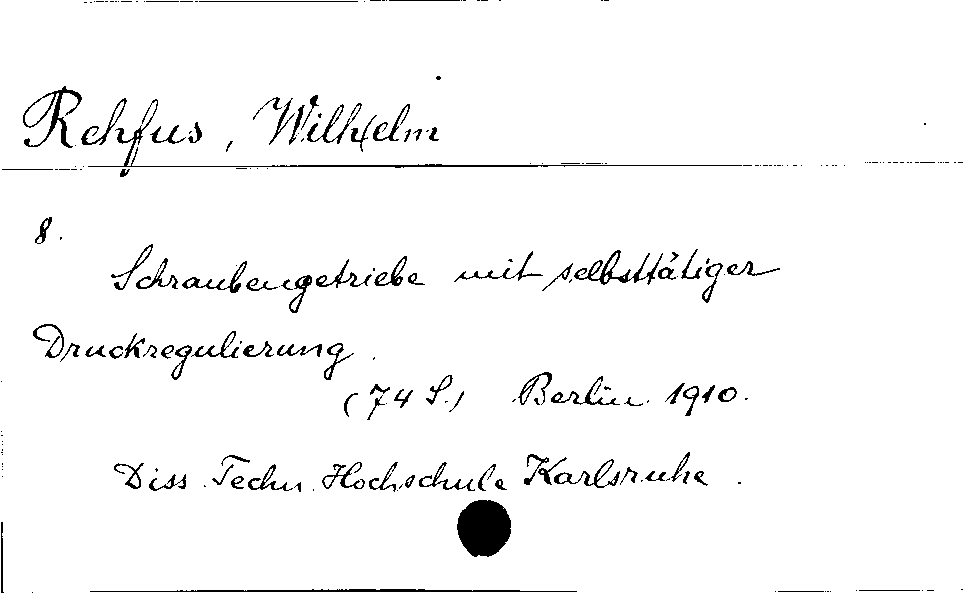 Rehfus, Wilhelm
8.
Schraubengetriebe mit selbsttätiger
Druckregulierung.
(74 S.) Berlin 1910.
Diss. Techn. Hochschule Karlsruhe.